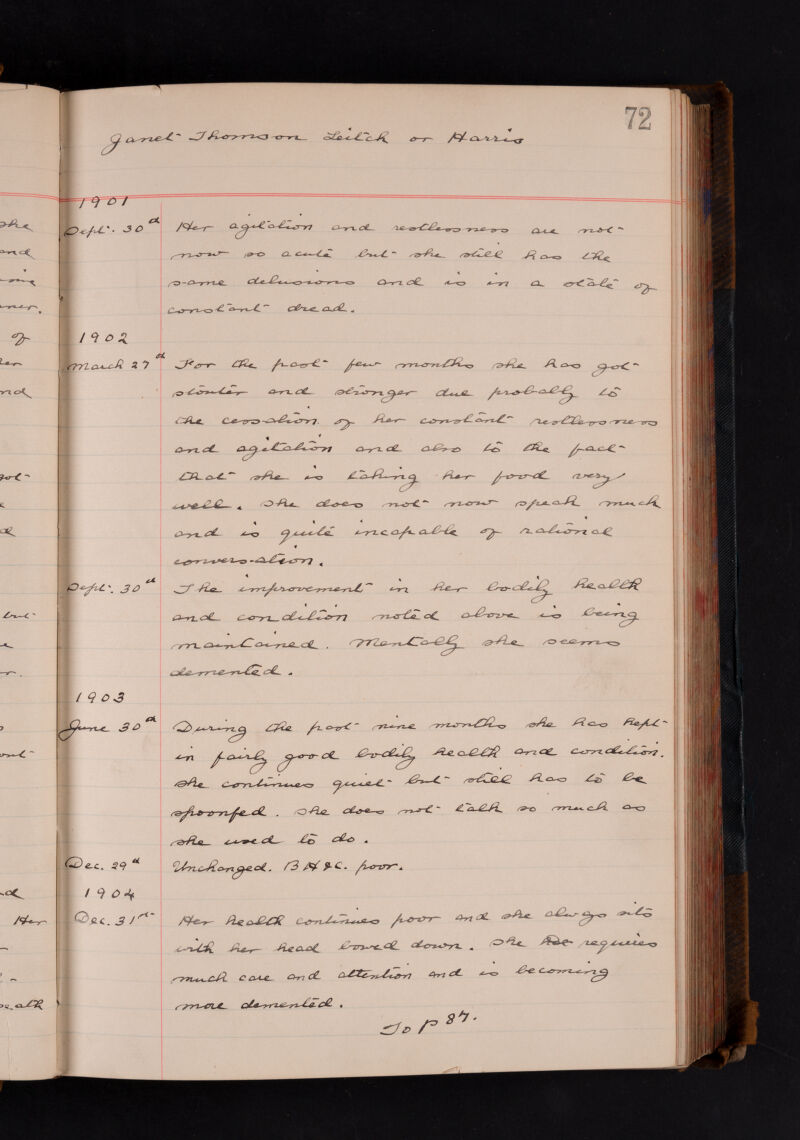 72
Janet Thomson Leitch or Harris
1901
Sept. 30th Her agitation and restlessness are not
now so acute but she still has the
same delusions and is in a state of
constant dread.
1902
March 27th For the past few months she has got
stouter and stronger due probably to
the cessation of her constant restlessness
and agitation and also to the fact
that she is taking her food very
well. She does not now speak much
and is quite incapable of rational
conversation.
Sept. 30th The improvement in her bodily health
and condition noted above is being
maintained. Mentally she seems
demented.
1903
June 30th During the past nine months she has kept
in fairly good bodily health and condition.
She continues quiet but still has to be
spoonfed. She does not talk so much as
she used to do.
Dec. 29th Unchanged. B H & C. poor.
1904
Dec. 31st Her health continues poor and she always sits
with her head bowed down. She requires
much care and attention and is becoming
more demented.
To p 87.
she
and
ner.
of
her
nd
got
but
Her
death